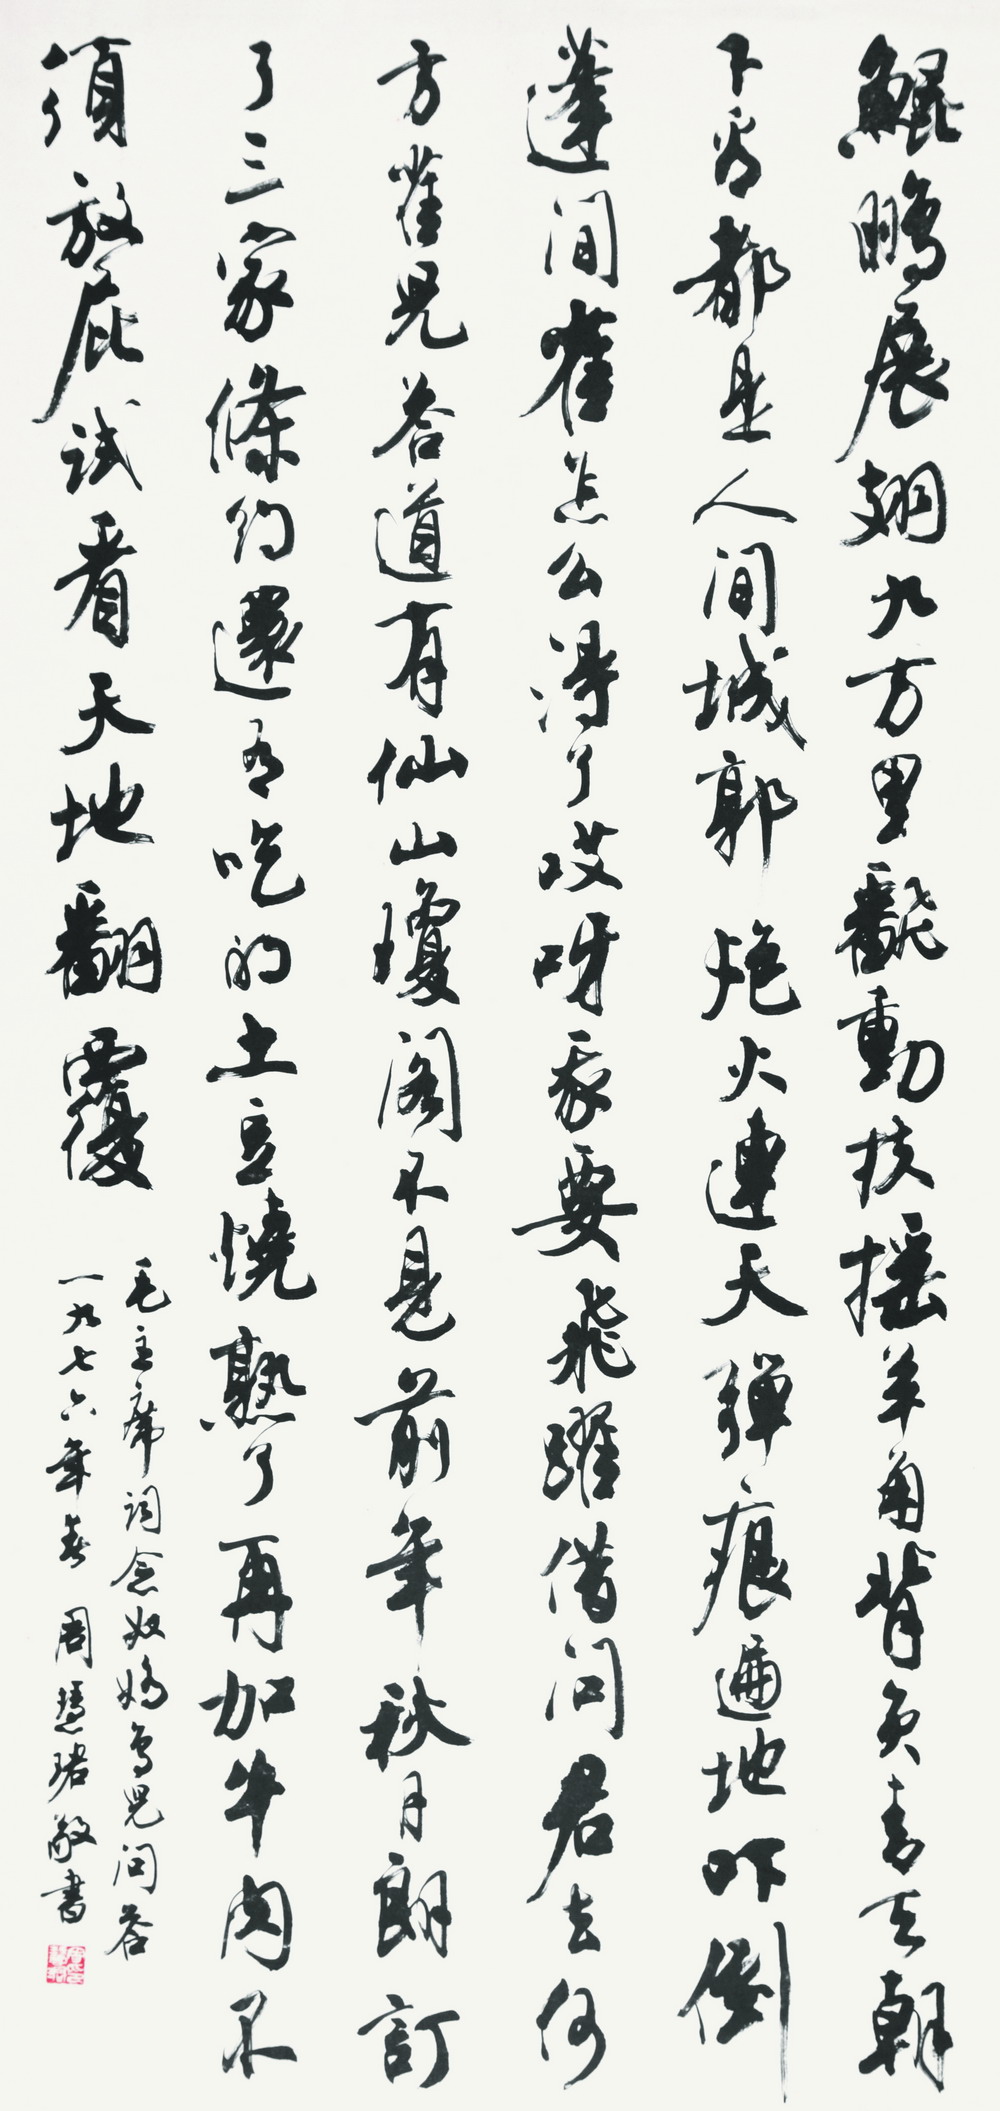 鯤鹏展翅九万里翻動扶摇羊角背负青天朝
下看都是人间城郭炮火連天弹痕遍地吓倒
蓬间雀怎么得了哎呀我要飛躍借问君去何
方雀児答道有仙山瓊阁不見前年秋月朗訂
了三家條约還有吃的土豆燒熟了再加牛肉不
須放屁试看天地翻覆
毛主席词念奴娇鸟児问答
一九七六年春 周慧珺敬書